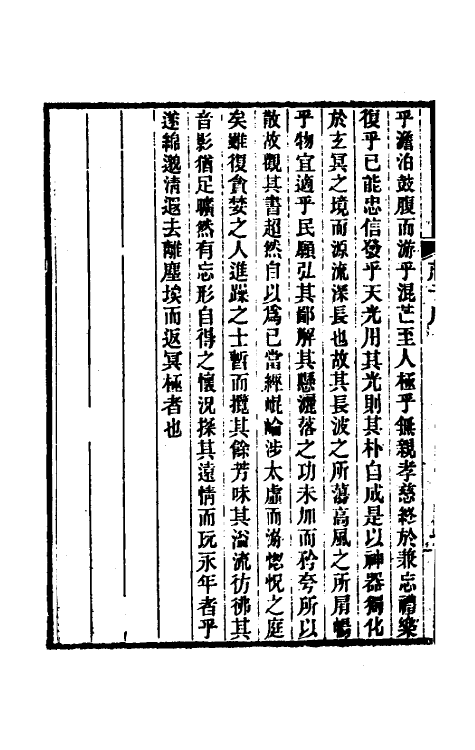 乎澹泊鼓腹而游乎混芒至人極乎無親孝慈終於兼忘禮樂
復乎已能忠信發乎天光用其光則其朴自成是以神器獨化
於玄冥之境而源流深長也故其長波之所蕩高風之所扇暢
乎物宜適乎民願弘其鄙解其懸灑落之功未加而矜夸所以
散故觀其書超然自以爲已當經崐崘涉太虛而游惚怳之庭
矣雖復貪婪之人進躁之士暫而攬其餘芳味其溢流彷彿其
音影猶足曠然有忘形自得之懷況探其遠情而玩永年者乎
遂綿邈清遐去離塵埃而返冥極者也